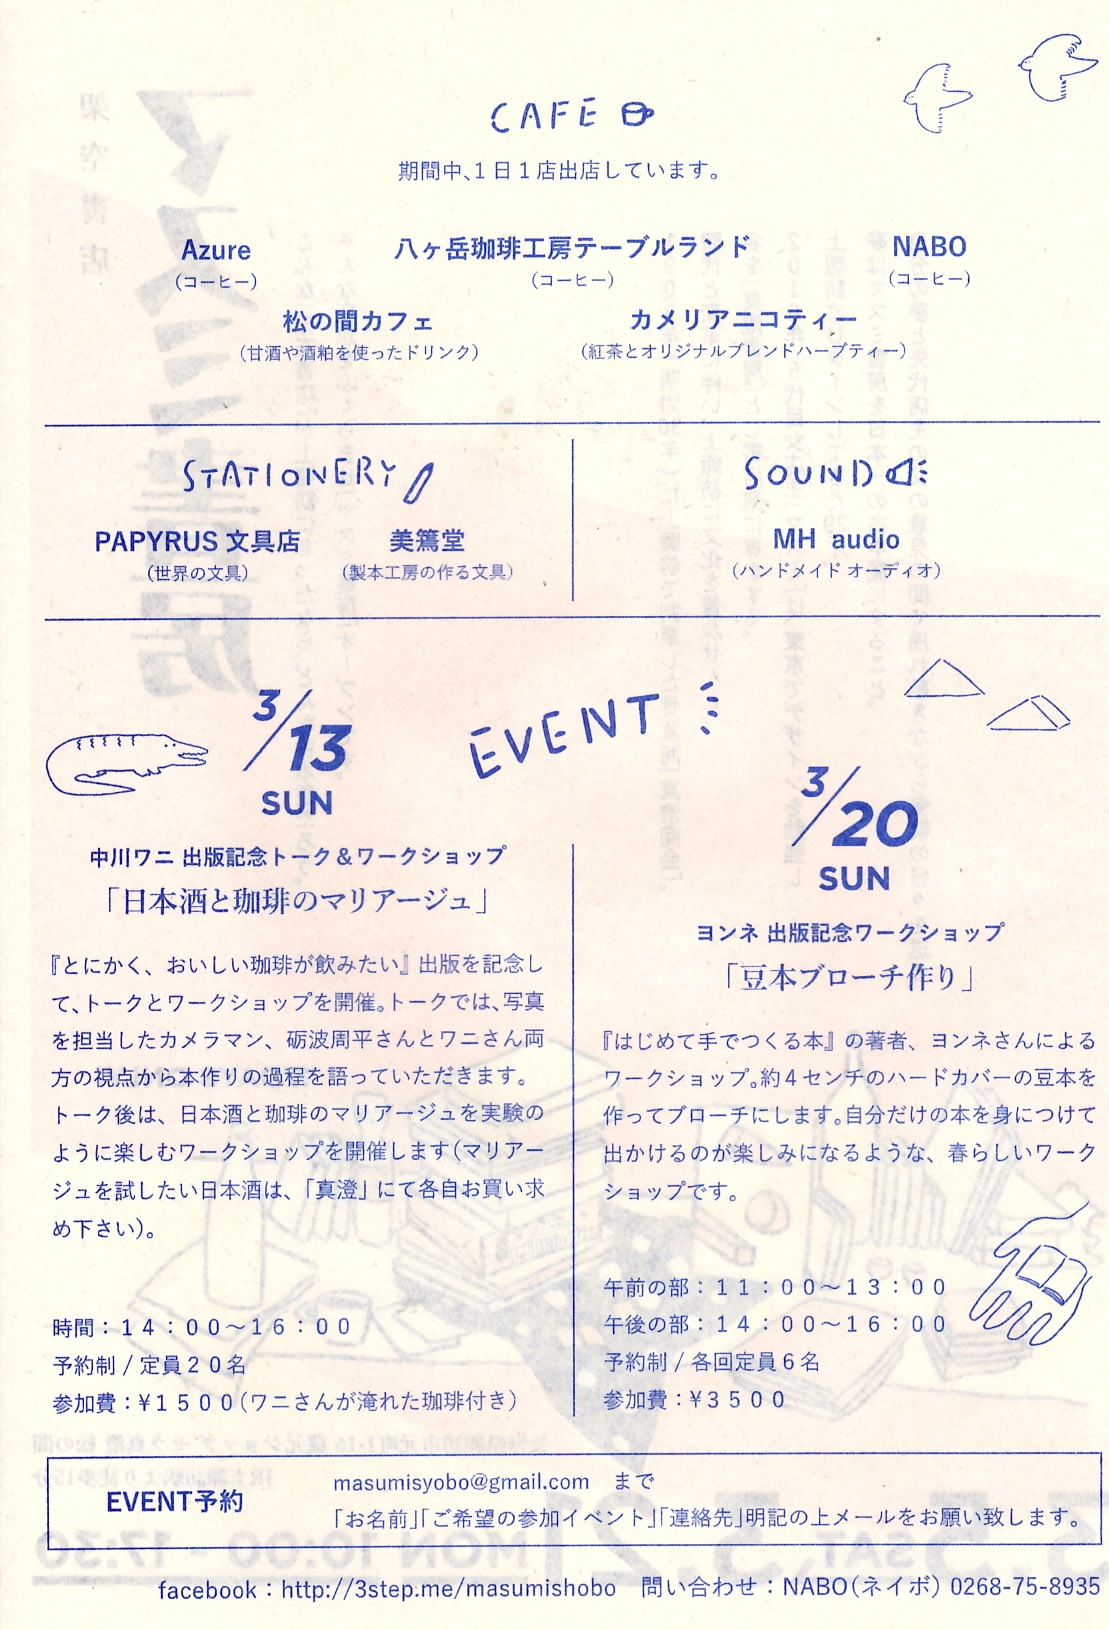 CAFE
期間中、1日1店出店しています。
Azure
(コーヒー)
八ヶ岳珈琲工房テーブルランド
(コーヒー)
NABO
(コーヒー)
松の間カフェ
(甘酒や酒粕を使ったドリンク)
カメリアニコティー
(紅茶とオリジナルブレンドハーブティー)
STATIONERY
PAPYRUS 文具店
(世界の文具)
美篶堂
(製本工房の作る文具)
SOUND
MH audio
(ハンドメイド オーディオ)
EVENT
3/13
SUN
中川ワニ 出版記念トーク＆ワークショップ
「日本酒と珈琲のマリアージュ」
『とにかく、おいしい珈琲が飲みたい』出版を記念し
て、トークとワークショップを開催。トークでは、写真
を担当したカメラマン、砺波周平さんとワニさん両
方の視点から本作りの過程を語っていただきます。
トーク後は、日本酒と珈琲のマリアージュを実験の
ように楽しむワークショップを開催します(マリアー
ジュを試したい日本酒は、「真澄」にて各自お買い求
め下さい)。
時間：１４：００〜１６：００
予約制 / 定員２０名
参加費：¥１５００(ワニさんが淹れた珈琲付き)
3/20
SUN
ヨンネ 出版記念ワークショップ
「豆本ブローチ作り」
『はじめて手でつくる本』の著者、ヨンネさんによる
ワークショップ。約４センチのハードカバーの豆本を
作ってブローチにします。自分だけの本を身につけて
出かけるのが楽しみになるような、春らしいワーク
ショップです。
午前の部：１１：００〜１３：００
午後の部：１４：００〜１６：００
予約制 / 各回定員６名
参加費：¥３５００
EVENT予約
masumisyobo@gmail.com　まで
「お名前」「ご希望の参加イベント」「連絡先」明記の上メールをお願い致します。
facebook：http://3step.me/masumishobo　問い合わせ：NABO(ネイボ) 0268-75-8935